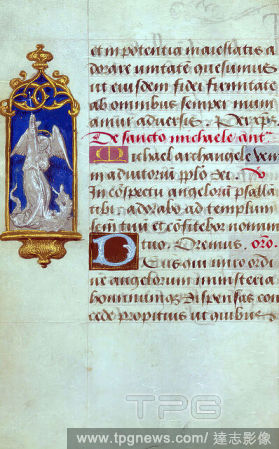 et in potentia maiestatis a
dorare unitatem quesumus
ut eiusdem fidei firmitate
ab omnibus semper muni
amur adversis. Per xpm.
De sancto michaele ant.
Michael archangele veni
in adiutorium pplo dei. V
In conspectu angelorum psallā
tibi. adorabo ad templum
sctm tuum et confitebor nomini
tuo. Oremus. oro.
Deus qui miro ordi
ne angelorum ministeria
hominumq; dispensas con
cede propitius ut quibus
TPG
www.tpgnews.com/ 達志影像